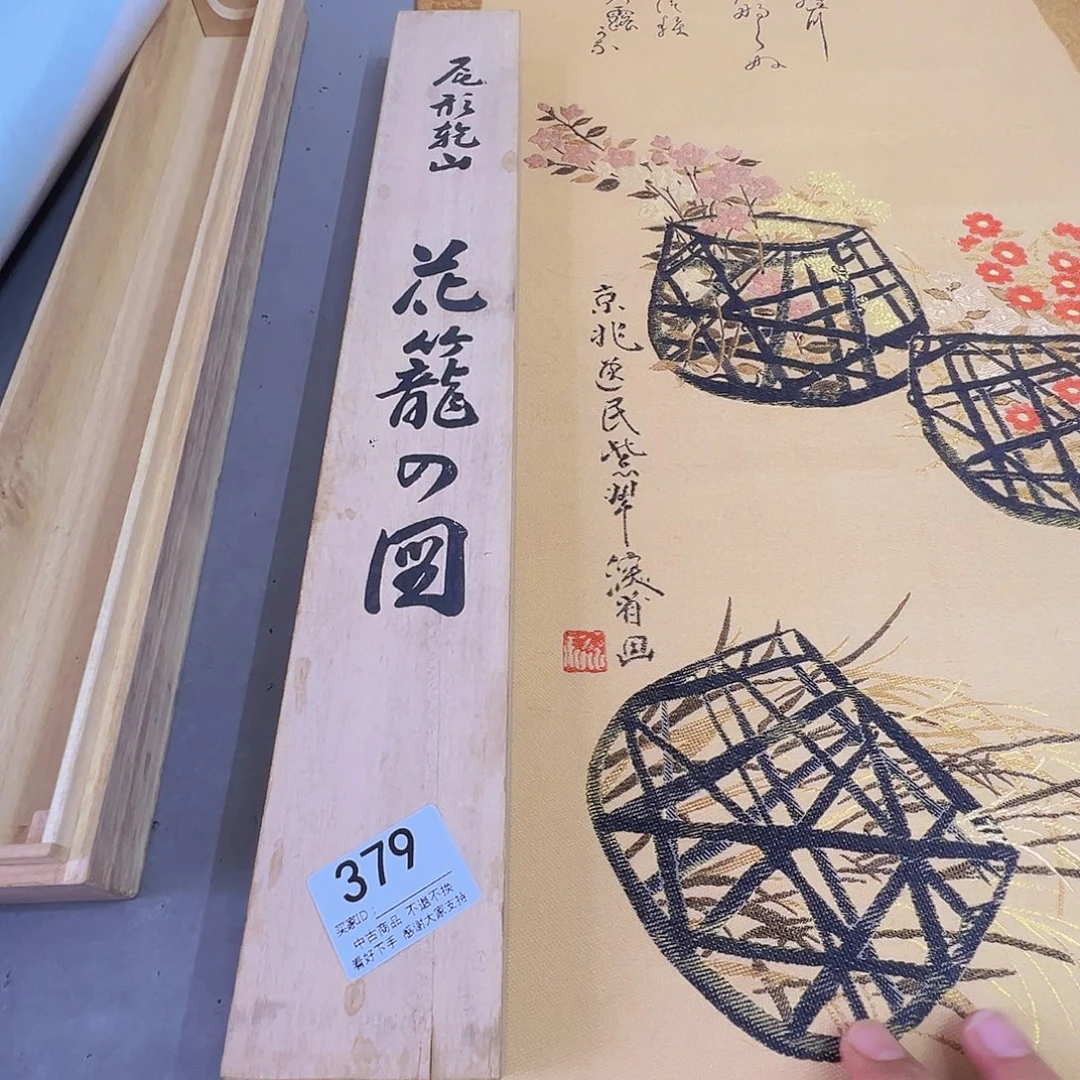 尾形乾山
花籠の図
京兆逸民紫翠深省画
379
买家ID：
中古商品 不退不换
看好下手 感谢大家支持